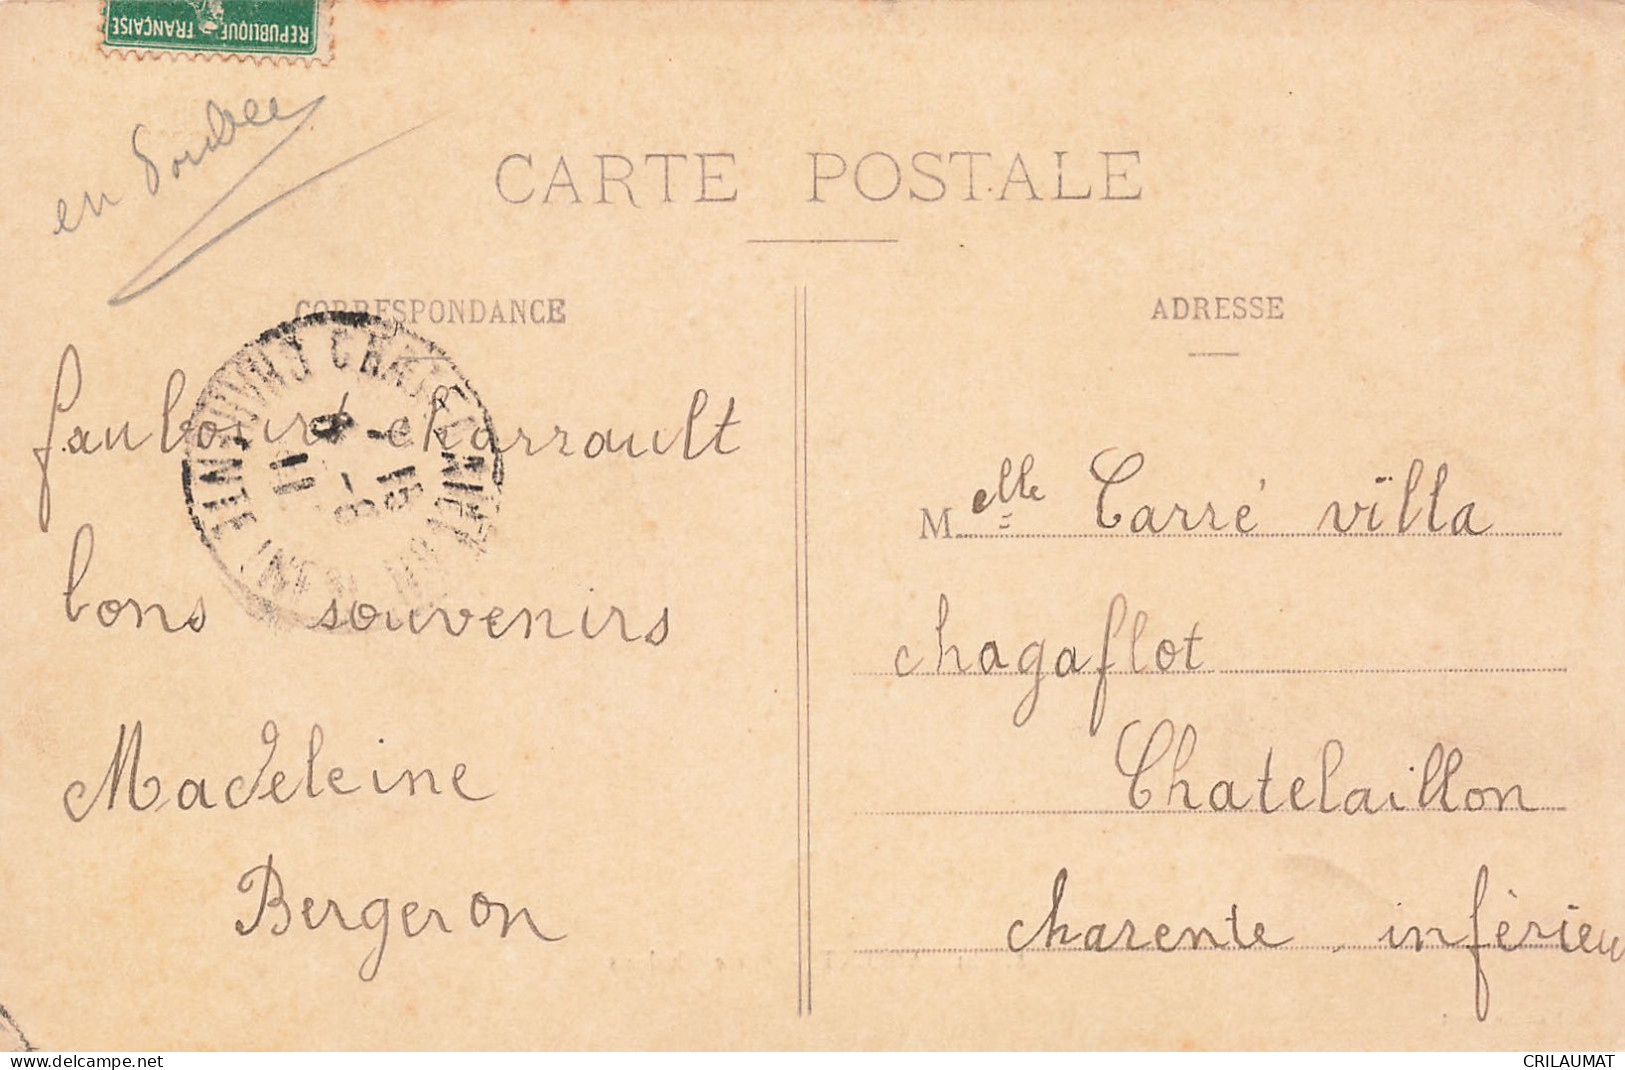 REPUBLIQUE FRANÇAISE
en double
CARTE POSTALE
CORRESPONDANCE
ADRESSE
faubourt charrault
bons souvenirs
Madeleine
Bergeron
Melle Carré villa
chagaflot
Chatelaillon
charente inférieu
www.delcampe.net
CRILAUMAT